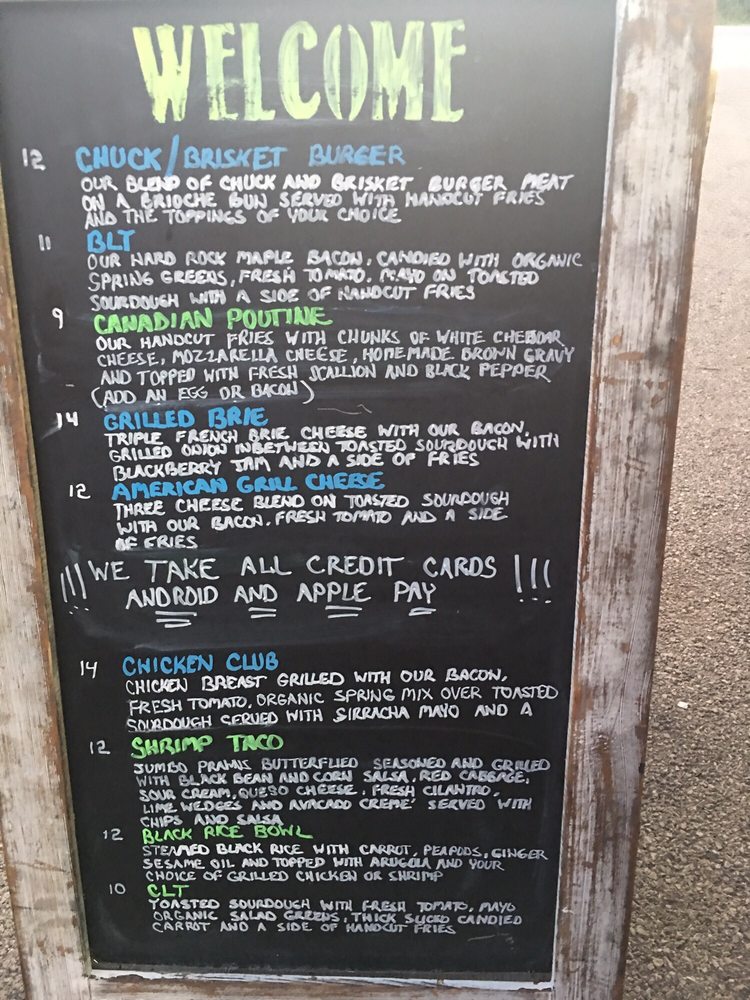 WELCOME
12 CHUCK/BRISKET BURGER
OUR BLEND OF CHUCK AND BRISKET BURGER MEAT
ON A BRIOCHE BUN SERVED WITH HANDCUT FRIES
AND THE TOPPINGS OF YOUR CHOICE
11 BLT
OUR HARD ROCK MAPLE BACON, CANDIED WITH ORGANIC
SPRING GREENS, FRESH TOMATO, MAYO ON TOASTED
SOURDOUGH WITH A SIDE OF HANDCUT FRIES
9 CANADIAN POUTINE
OUR HANDCUT FRIES WITH CHUNKS OF WHITE CHEDDAR
CHEESE, MOZZARELLA CHEESE, HOMEMADE BROWN GRAVY
AND TOPPED WITH FRESH SCALLION AND BLACK PEPPER
(ADD AN EGG OR BACON)
14 GRILLED BRIE
TRIPLE FRENCH BRIE CHEESE WITH OUR BACON,
GRILLED ONION INBETWEEN TOASTED SOURDOUGH WITH
BLACKBERRY JAM AND A SIDE OF FRIES
12 AMERICAN GRILL CHEESE
THREE CHEESE BLEND ON TOASTED SOURDOUGH
WITH OUR BACON, FRESH TOMATO AND A SIDE
OF FRIES
!!! WE TAKE ALL CREDIT CARDS !!!
ANDROID AND APPLE PAY
14 CHICKEN CLUB
CHICKEN BREAST GRILLED WITH OUR BACON,
FRESH TOMATO, ORGANIC SPRING MIX OVER TOASTED
SOURDOUGH SERVED WITH SIRRACHA MAYO AND A
12 SHRIMP TACO
JUMBO PRAWNS BUTTERFLIED SEASONED AND GRILLED
WITH BLACK BEAN AND CORN SALSA, RED CABBAGE,
SOUR CREAM, QUESO CHEESE, FRESH CILANTRO,
LIME WEDGES AND AVACADO CREME' SERVED WITH
CHIPS AND SALSA
12 BLACK RICE BOWL
STEAMED BLACK RICE WITH CARROT, PEAPODS, GINGER
SESAME OIL AND TOPPED WITH ARUGOLA AND YOUR
CHOICE OF GRILLED CHICKEN OR SHRIMP
10 CLT
TOASTED SOURDOUGH WITH FRESH TOMATO, MAYO
ORGANIC SALAD GREENS, THICK SLICED CANDIED
CARROT AND A SIDE OF HANDCUT FRIES